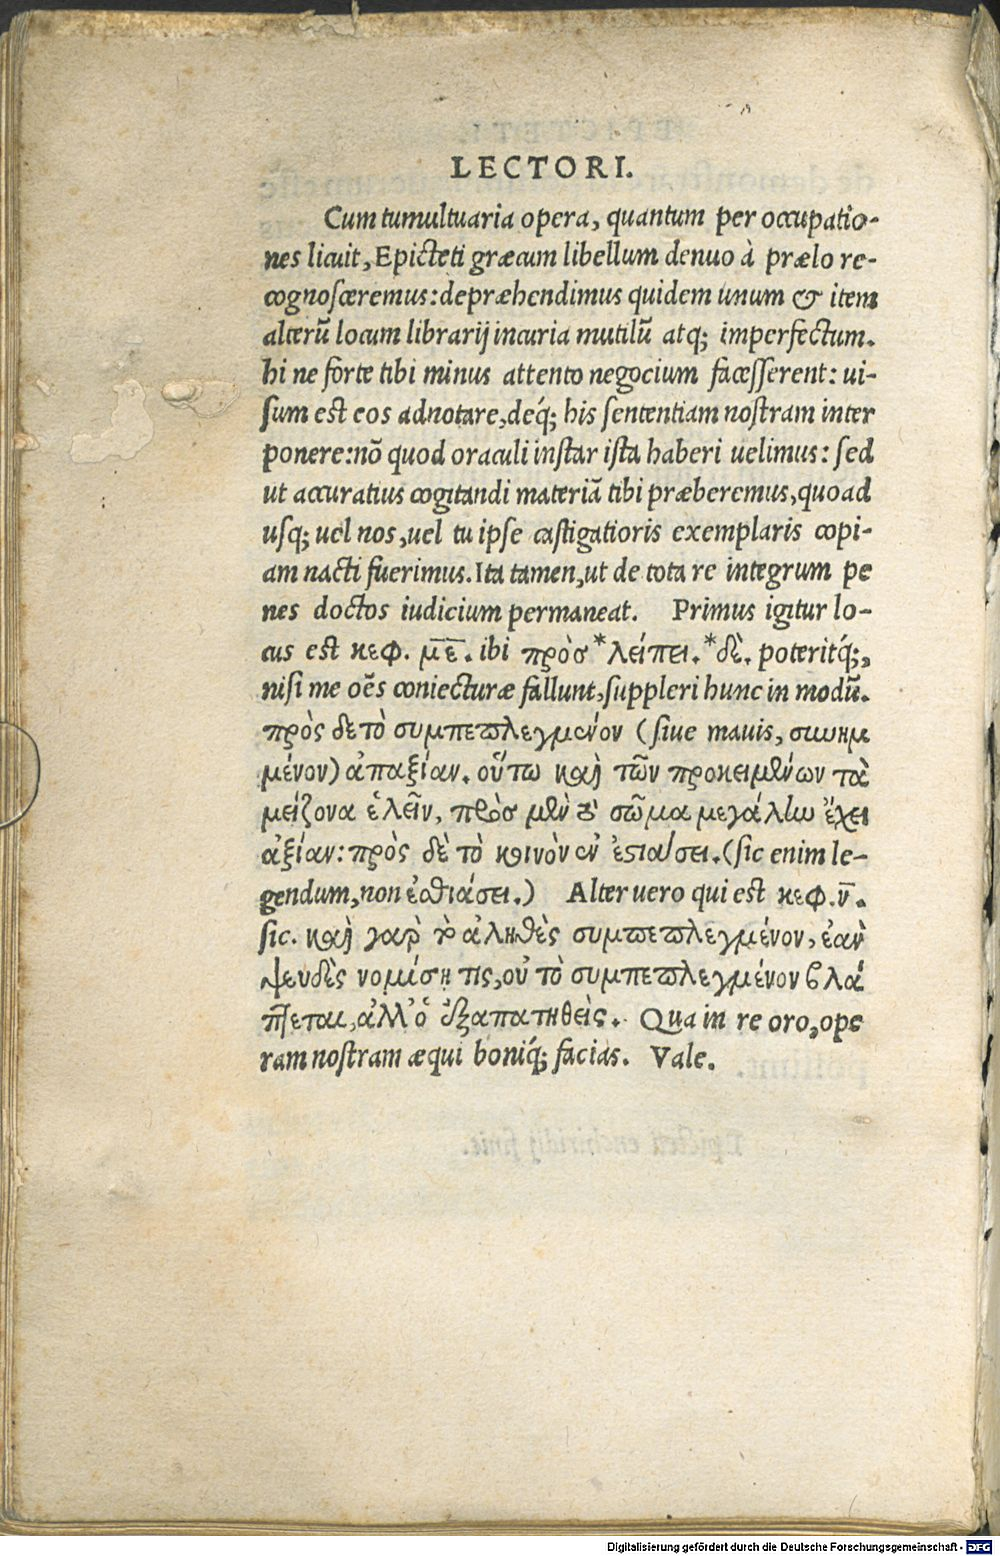 LECTORI.
Cum tumultuaria opera, quantum per occupatio-
nes licuit, Epicteti græcum libellum denuo à prælo re-
cognosceremus: depræhendimus quidem unum & item
alterũ locum librarij incuria mutilũ atq; imperfectum.
hi ne forte tibi minus attento negocium facesserent: ui-
sum est eos adnotare, deq́; his sententiam nostram inter
ponere: nõ quod oraculi instar ista haberi uelimus: sed
ut accuratius cogitandi materiã tibi præberemus, quoad
usq; uel nos, uel tu ipse castigatioris exemplaris copi-
am nacti fuerimus. Ita tamen, ut de tota re integrum pe
nes doctos iudicium permaneat. Primus igitur lo-
cus est κεφ. μ̅ε̅. ibi πρὸσ * λείπει. * δὲ. poteritq́;,
nisi me oẽs coniecturæ fallunt, suppleri hunc in modũ.
πρὸς δὲ τὸ συμπεπλεγμένον ( siue mauis, συνημ
μένον) ἀπαξίαν. οὕτω καὶ τῶν προκειμένων τὰ
μείζονα ἑλεῖν, πρὸσ μὲν τὸ σῶμα μεγάλην ἔχει
ἀξίαν: πρὸς δὲ τὸ κοινὸν ἐν ἑστιάσει. (sic enim le-
gendum, non ἐσθιάσει.) Alter uero qui est κεφ. ν̅.
sic. καὶ γὰρ τὸ ἀληθὲς συμπεπλεγμένον, ἐὰν
ψευδὲς νομίσῃ τις, οὐ τὸ συμπεπλεγμένον βλά
πτεται, ἀλλ' ὁ ἐξαπατηθείς. Qua in re oro, ope
ram nostram æqui boniq́; facias. Vale.
Digitalisierung gefördert durch die Deutsche Forschungsgemeinschaft - DFG